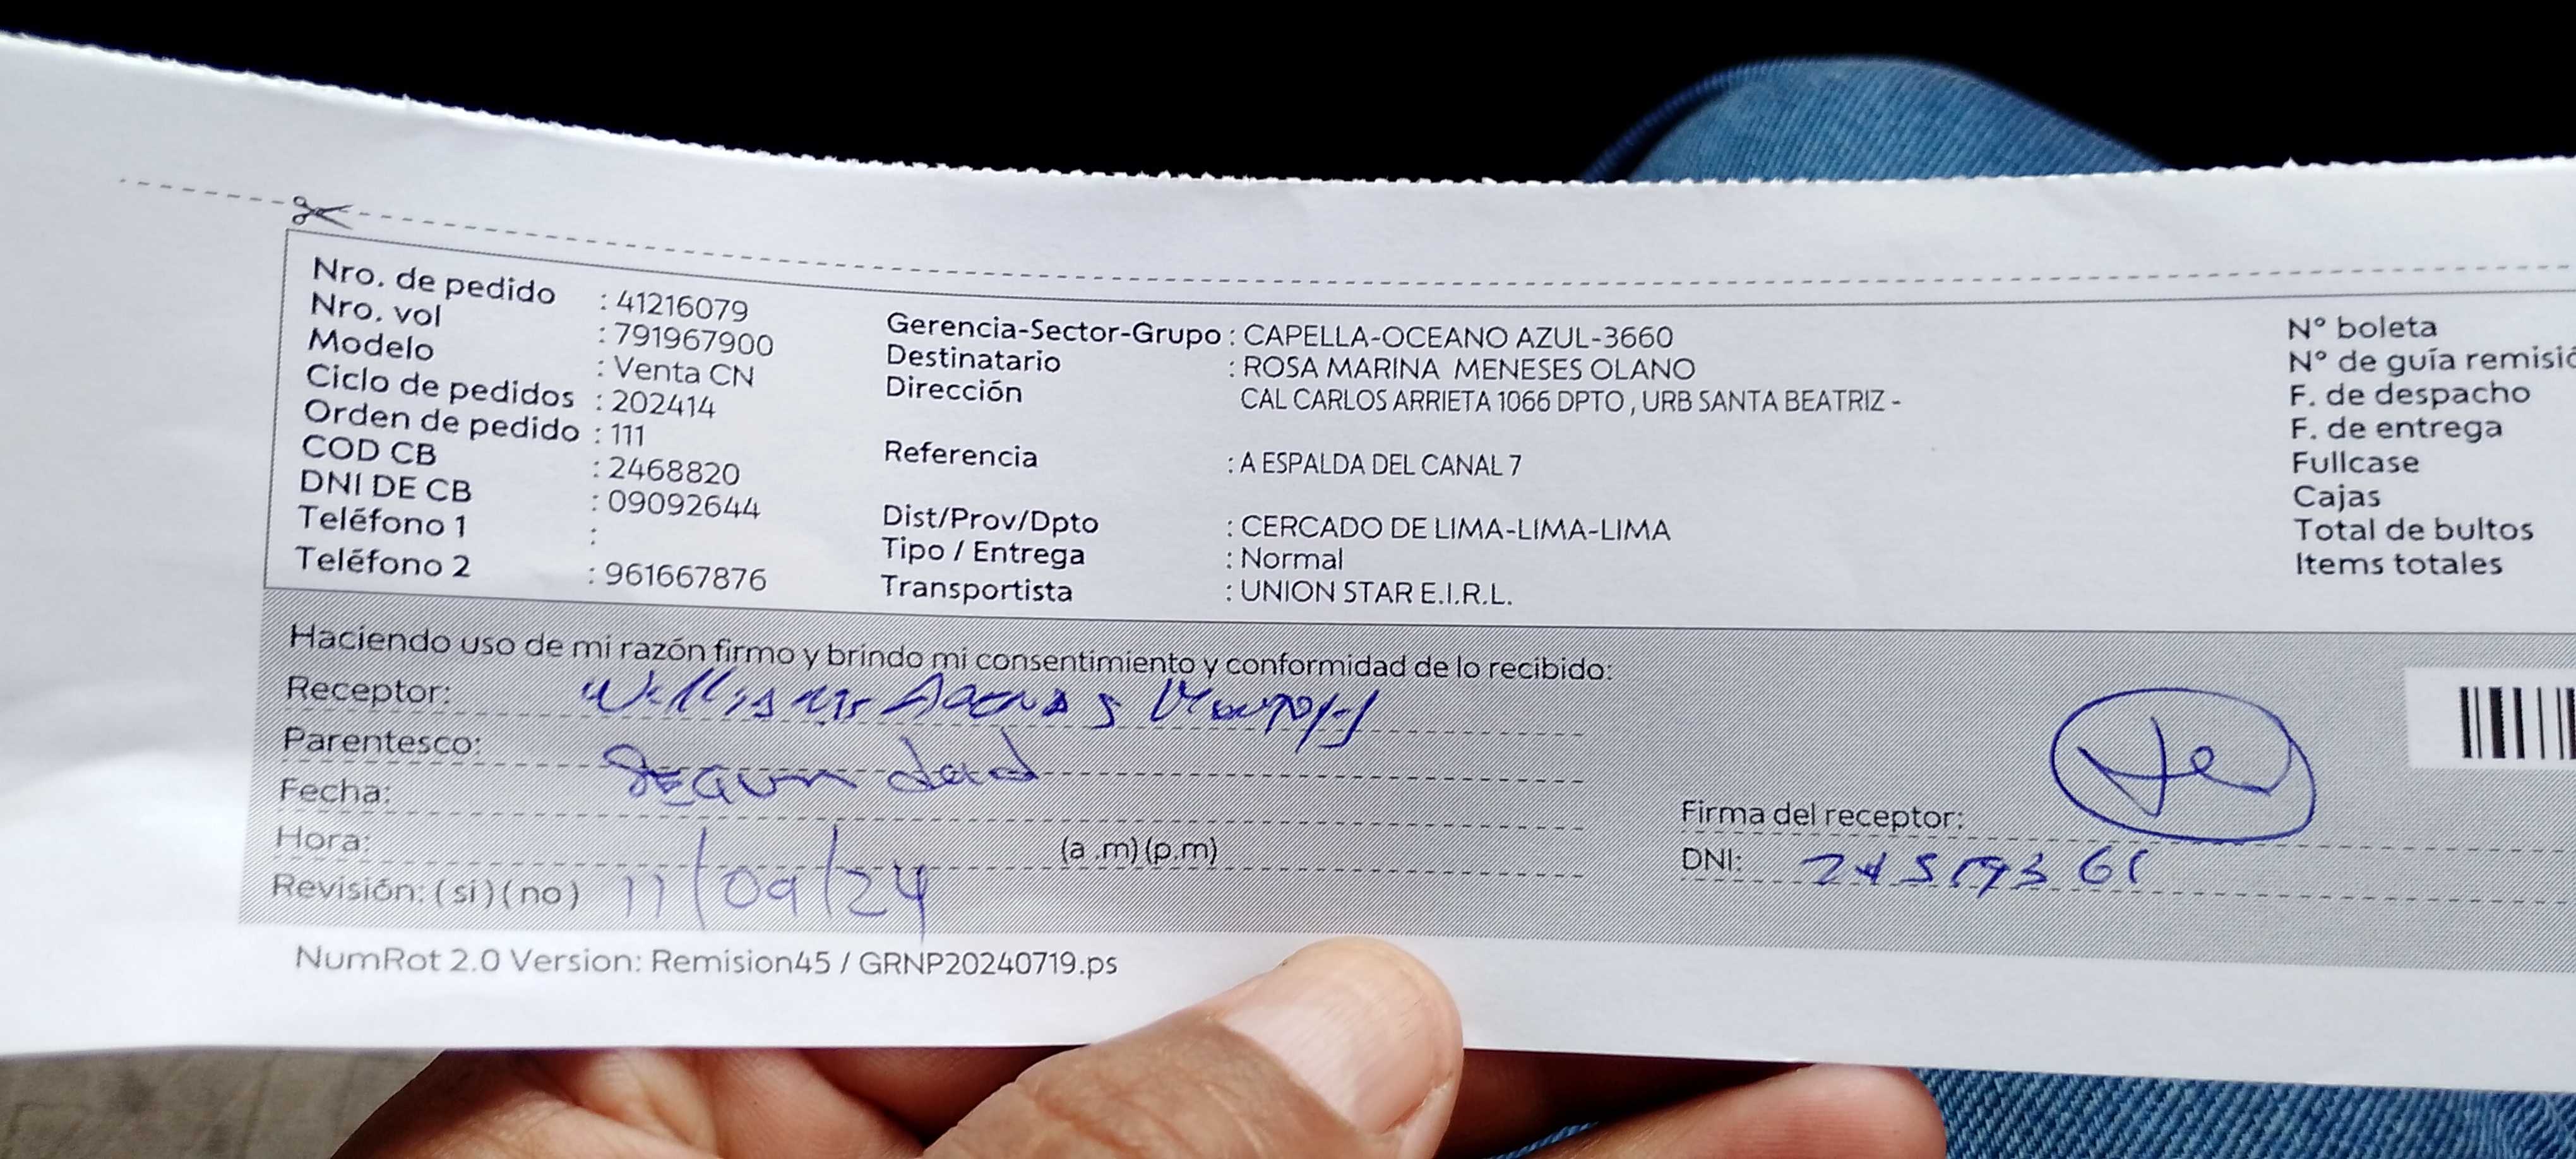 Nro. de pedido : 41216079
Nro. vol : 791967900
Modelo : Venta CN
Ciclo de pedidos : 202414
Orden de pedido : 111
COD CB : 2468820
DNI DE CB : 09092644
Teléfono 1 :
Teléfono 2 : 961667876
Gerencia-Sector-Grupo : CAPELLA-OCEANO AZUL-3660
Destinatario : ROSA MARINA MENESES OLANO
Dirección CAL CARLOS ARRIETA 1066 DPTO , URB SANTA BEATRIZ -
Referencia : A ESPALDA DEL CANAL 7
Dist/Prov/Dpto : CERCADO DE LIMA-LIMA-LIMA
Tipo / Entrega : Normal
Transportista : UNION STAR E.I.R.L.
N° boleta
N° de guía remisió
F. de despacho
F. de entrega
Fullcase
Cajas
Total de bultos
Items totales
Haciendo uso de mi razón firmo y brindo mi consentimiento y conformidad de lo recibido:
Receptor:
Parentesco: Seguridad
Fecha:
Hora: (a .m) (p.m)
Revisión: ( si ) ( no ) 11/09/24
Firma del receptor:
DNI:
NumRot 2.0 Version: Remision45 / GRNP20240719.ps